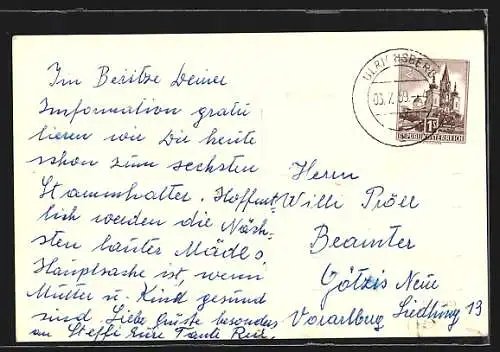 Im Besitze Deiner
Information gratu
lieren wir Dir heute
schon zum sechsten
Stammhalter. Hoffent-
lich werden die Näch-
sten lauter Mädls,
Hauptsache ist, wenn
Mutter u. Kind gesund
sind. Liebe Grüsse besonders
an Steffi Eure Tante Resi.
ULRICHSBERG
03.7.59
1S
REPUBLIK ÖSTERREICH
Herrn
Willi Pröll
Beamter
Götzis Neue
Siedlung 13
Vorarlberg